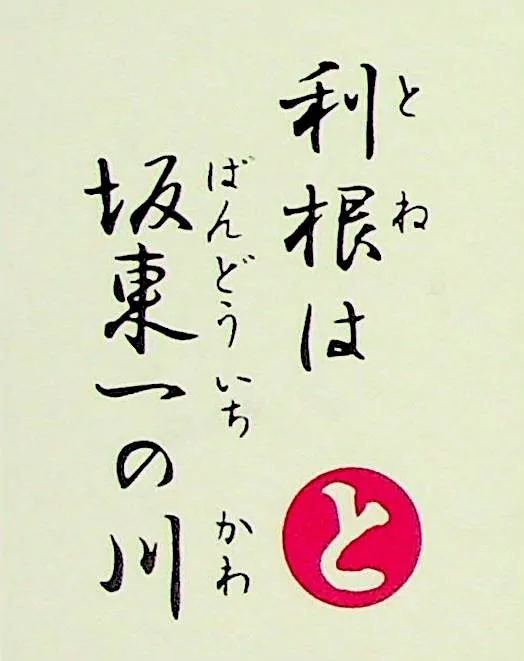 とね
利根は
ばんどういち かわ
坂東一の川
と